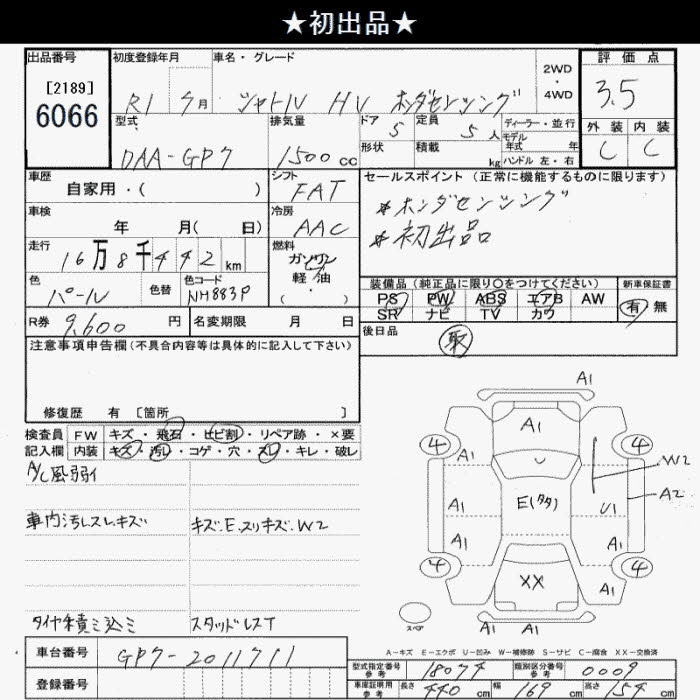 ★初出品★
出品番号 初度登録年月 車名・グレード 2WD・4WD 評価点
[2189]
6066
R1 7月 シャトル HV ホンダセンシング 3.5
型式 排気量 ドア 5 定員 5人 ディーラー・並行 モデル 年式 年 外装 内装
DAA-GP7 1500cc 形状 積載 kg ハンドル 左・右 C C
車歴 自家用・( ) シフト FAT セールスポイント (正常に機能するものに限ります)
車検 年 月( 日) 冷房 AAC *ホンダセンシング
*初出品
走行 16万8千442km 燃料 ガソリン 軽油 ( ・ )
色 パール 色替 色コード NH883P 装備品(純正品に限り○をつけてください) 新車保証書
PS PW ABS エアB AW 有 無
SR ナビ TV カワ
R券 9,600円 名変期限 月 日 後日品 取
注意事項申告欄(不具合内容等は具体的に記入して下さい)
修復歴 有 [箇所 ]
検査員 FW キズ・飛石・ヒビ割・リペア跡・×要
記入欄 内装 キズ・汚レ・コゲ・穴・スレ・キレ・破レ
A/C風弱イ
車内汚レスレキズ キズ.E.スリキズ.W2
タイヤ積ミ込ミ スタッドレスT
A1
A1
4 4
A1 A1 W2
A2
A1 E(タタ) U1
A1 A1
4 4
XX
A1 A1
スペア A1 A1
A-キズ E-エクボ U-凹み W-補修跡 S-サビ C-腐食 XX-交換済
車台番号 GP7-2011711
登録番号
型式指定番号 参考 18074 類別区分番号 参考 0009
車庫証明用 参考 長さ 440cm 幅 169cm 高さ 154cm